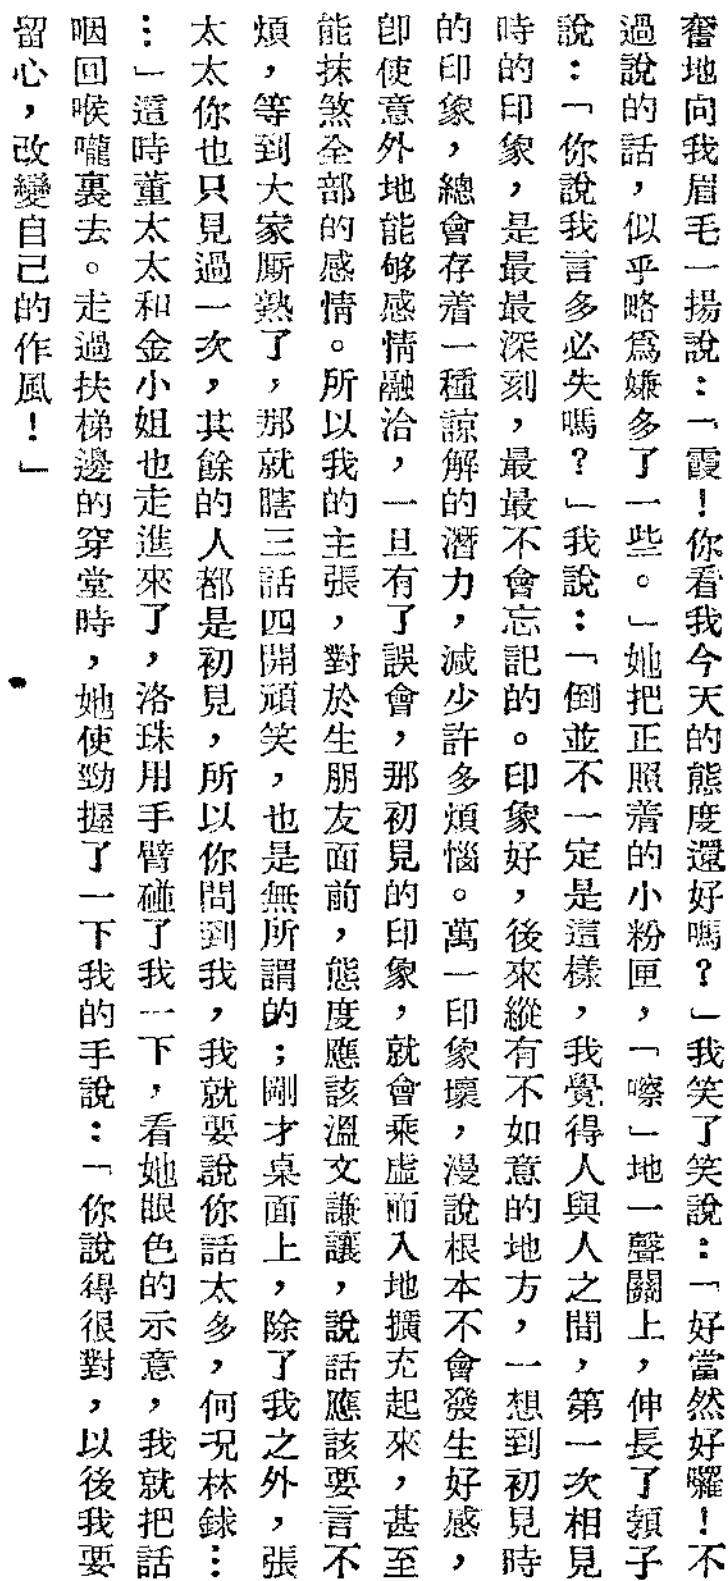 奮地向我眉毛一揚說：「霞！你看我今天的態度還好嗎？」我笑了笑說：「好當然好囉！不
過說的話，似乎略爲嫌多了一些。」她把正照着的小粉匣，「嚓」地一聲關上，伸長了頸子
說：「你說我言多必失嗎？」我說：「倒並不一定是這樣，我覺得人與人之間，第一次相見
時的印象，是最最深刻，最最不會忘記的。印象好，後來縱有不如意的地方，一想到初見時
的印象，總會存着一種諒解的潛力，減少許多煩惱。萬一印象壞，漫說根本不會發生好感，
卽使意外地能够感情融洽，一旦有了誤會，那初見的印象，就會乘虛而入地擴充起來，甚至
能抹煞全部的感情。所以我的主張，對於生朋友面前，態度應該溫文謙讓，說話應該要言不
煩，等到大家厮熟了，那就瞎三話四開頑笑，也是無所謂的；剛才桌面上，除了我之外，張
太太你也只見過一次，其餘的人都是初見，所以你問到我，我就要說你話太多，何况林銶…
…」這時董太太和金小姐也走進來了，洛珠用手臂碰了我一下，看她眼色的示意，我就把話
咽回喉嚨裏去。走過扶梯邊的穿堂時，她使勁握了一下我的手說：「你說得很對，以後我要
留心，改變自己的作風！」